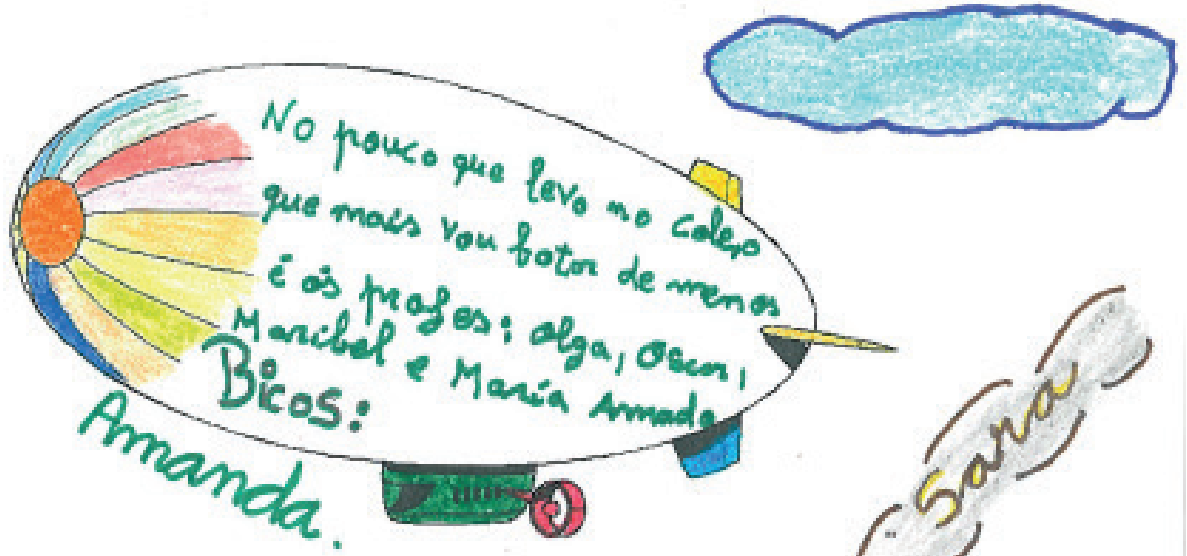 No pouco que levo no colexo
que mais vou botar de menos
é ós profes: Olga, Oscar,
Maribel e María Amada
Bicos:
Amanda.
Sara